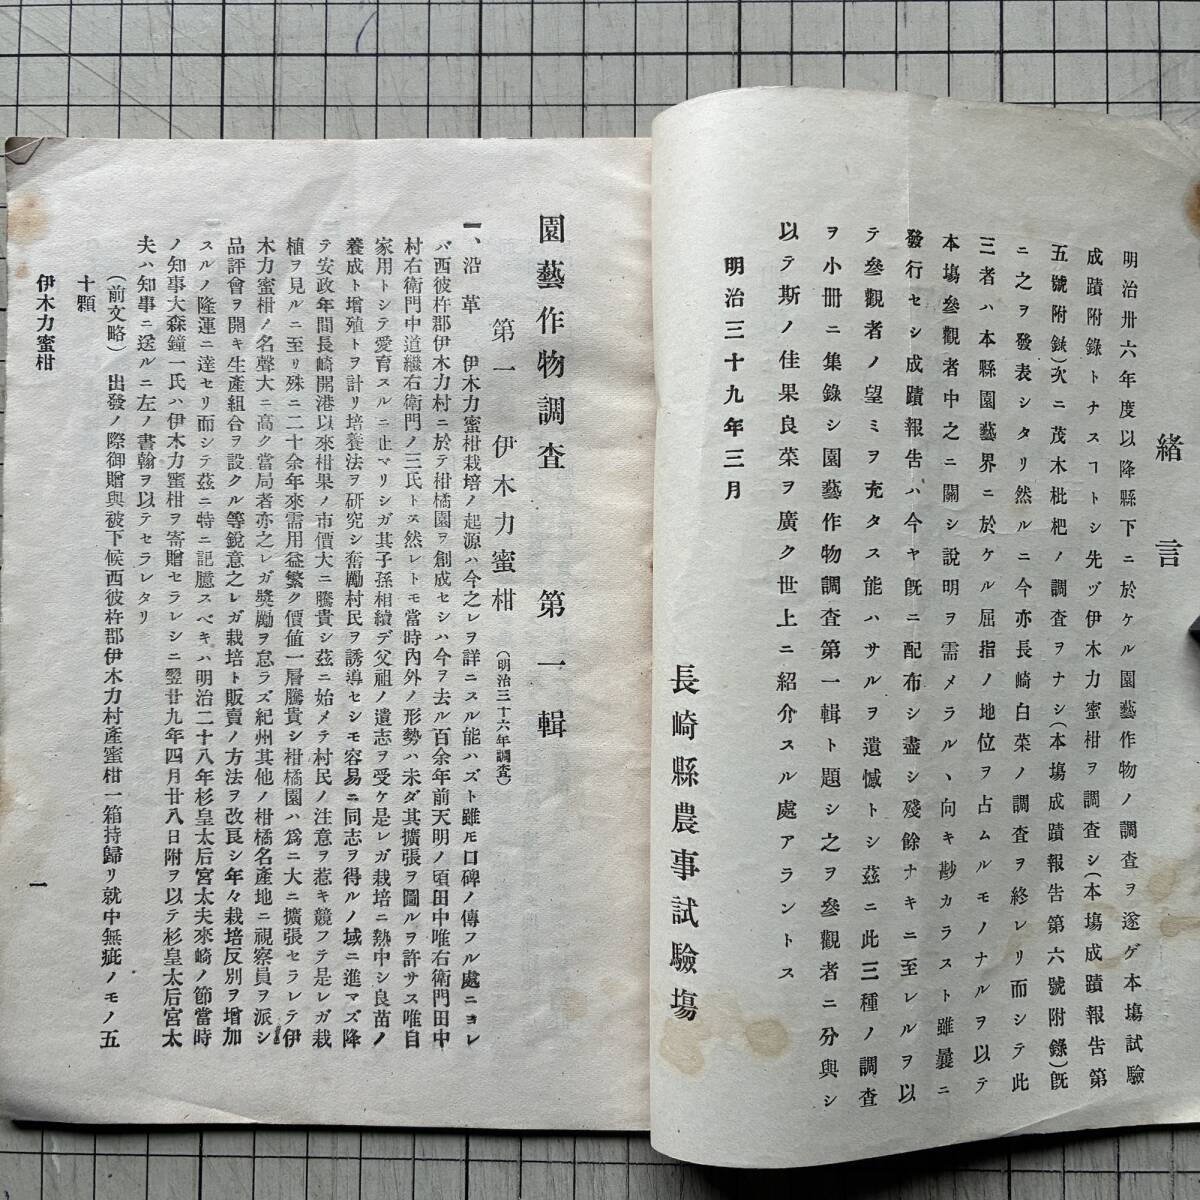 緒言
明治卅六年度以降縣下ニ於ケル園藝作物ノ調査ヲ遂ゲ本塲試驗
成蹟附錄トナスヿトシ先ヅ伊木力蜜柑ヲ調査シ(本塲成蹟報告第
五號附錄)次ニ茂木枇杷ノ調査ヲナシ(本塲成蹟報告第六號附錄)旣
ニ之ヲ發表シタリ然ルニ今亦長崎白菜ノ調査ヲ終レリ而シテ此
三者ハ本縣園藝界ニ於ケル屈指ノ地位ヲ占ムルモノナルヲ以テ
本塲參觀者中之ニ關シ說明ヲ需メラルヽ向キ尠カラスト雖曩ニ
發行セシ成蹟報告ハ今ヤ旣ニ配布シ盡シ殘餘ナキニ至レルヲ以
テ參觀者ノ望ミヲ充タス能ハサルヲ遺憾トシ茲ニ此三種ノ調査
ヲ小冊ニ集錄シ園藝作物調査第一輯ト題シ之ヲ參觀者ニ分與シ
以テ斯ノ佳果良菜ヲ廣ク世上ニ紹介スル處アラントス
明治三十九年三月
長崎縣農事試驗塲
園藝作物調査 第一輯
第一 伊木力蜜柑 (明治三十六年調査)
一、沿革 伊木力蜜柑栽培ノ起源ハ今之レヲ詳ニスル能ハズト雖モ口碑ノ傳フル處ニヨレ
バ西彼杵郡伊木力村ニ於テ柑橘園ヲ創成セシハ今ヲ去ル百余年前天明ノ頃田中唯右衛門田中
村右衛門中道繼右衛門ノ三氏トス然レトモ當時內外ノ形勢ハ未ダ其擴張ヲ圖ルヲ許サス唯自
家用トシテ愛育スルニ止マリシガ其子孫相續デ父祖ノ遺志ヲ受ケ是レガ栽培ニ熱中シ良苗ノ
養成ト增殖トヲ計リ培養法ヲ硏究シ奮勵村民ヲ誘導セシモ容易ニ同志ヲ得ルノ域ニ進マズ降
テ安政年間長崎開港以來柑果ノ市價大ニ騰貴シ茲ニ始メテ村民ノ注意ヲ惹キ競フテ是レガ栽
植ヲ見ルニ至リ殊ニ二十余年來需用益繁ク價値一層騰貴シ柑橘園ハ爲ニ大ニ擴張セラレテ伊
木力蜜柑ノ名聲大ニ高ク當局者亦之レガ奬勵ヲ怠ラズ紀州其他ノ柑橘名產地ニ視察員ヲ派シ
品評會ヲ開キ生產組合ヲ設クル等銳意之レガ栽培ト販賣ノ方法ヲ改良シ年々栽培反別ヲ增加
スルノ隆運ニ達セリ而シテ茲ニ特ニ記臆スベキハ明治二十八年杉皇太后宮太夫來崎ノ節當時
ノ知事大森鐘一氏ハ伊木力蜜柑ヲ寄贈セラレシニ翌廿九年四月廿八日附ヲ以テ杉皇太后宮太
夫ハ知事ニ送ルニ左ノ書翰ヲ以テセラレタリ
(前文略) 出發ノ際御贈與被下候西彼杵郡伊木力村產蜜柑一箱持歸リ就中無疵ノモノ五
十顆
伊木力蜜柑
一